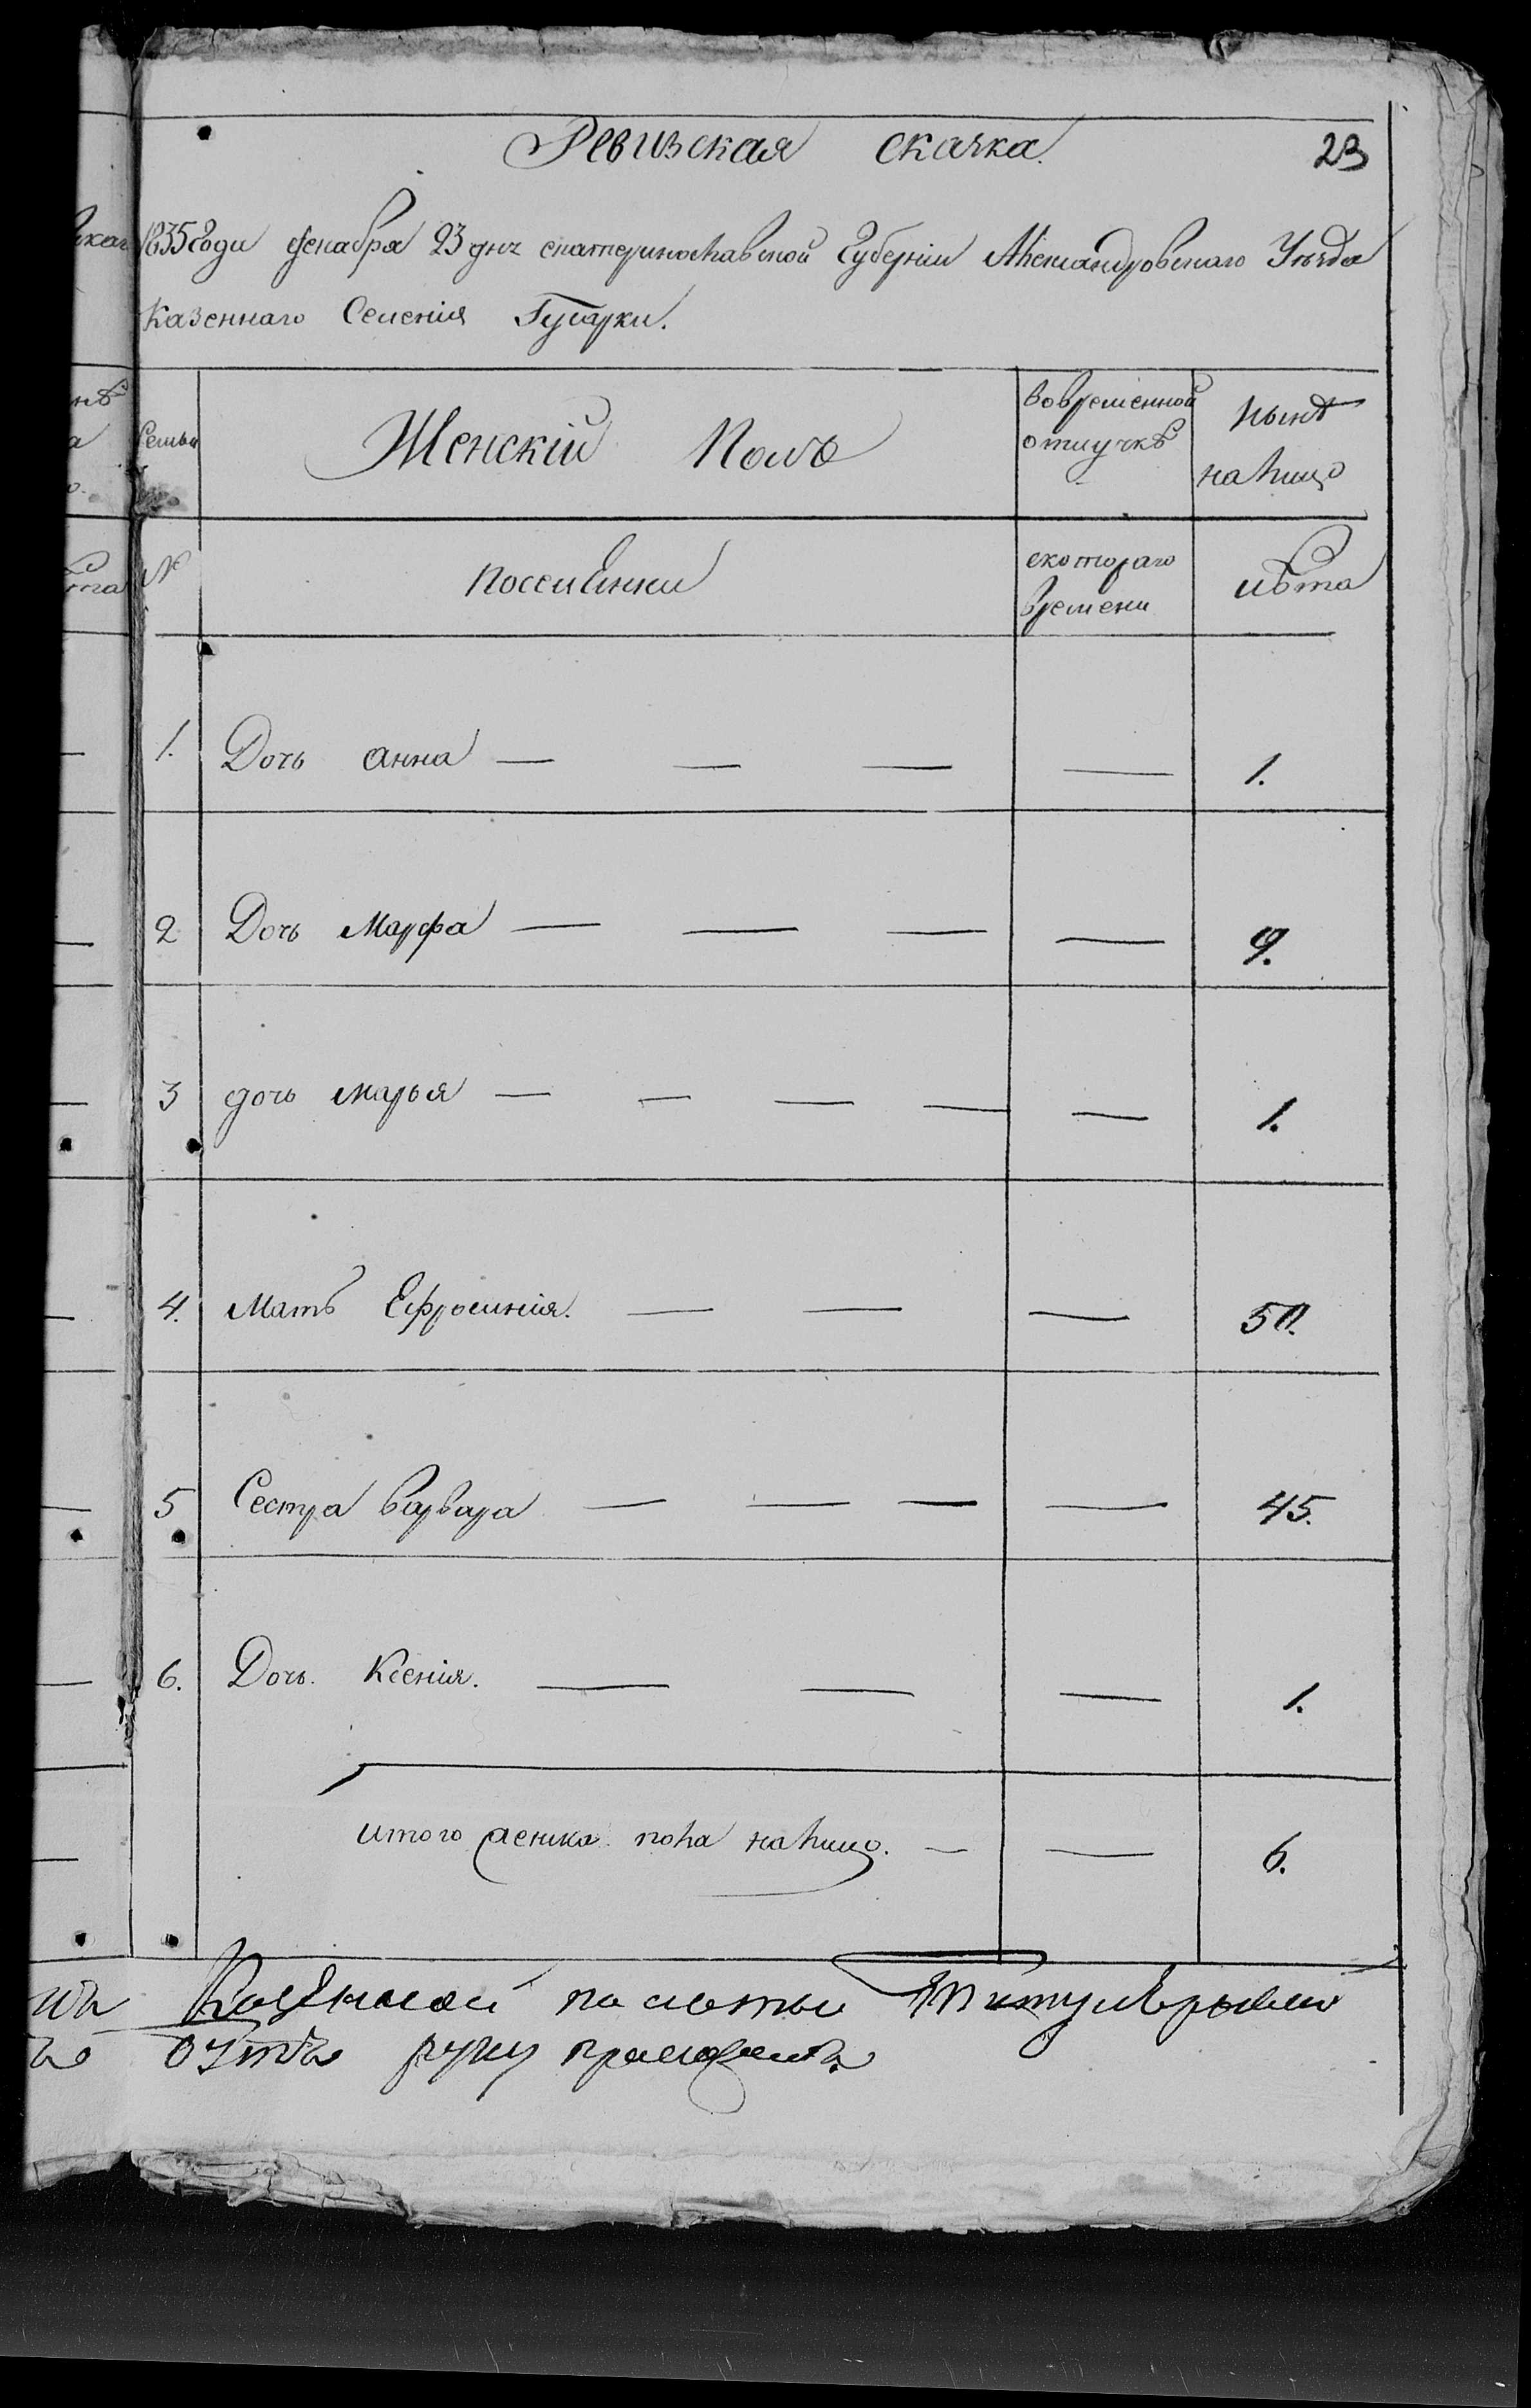 Ревизская скаска. 23
1835 Года декабря 23 дня екатеринославской Губернии Александровскаго Уезда
Казеннаго Селения Гусарки.
Семьи
Женскiй Полъ
Вовременной
отлучкѣ
Нынѣ
налицо
№
Посселянки
скотораго
времени
лѣта
1. Дочь анна — — — — 1.
2 Дочь Марфа — — — — 9.
3 дочь марья — — — — — 1.
4. Мать Ефросинiя. — — — 50.
5 Сестра варвара — — — — 45.
6. Дочь. Ксенiя. — — — 1.
итого женска пола налицо. — — 6.
руку